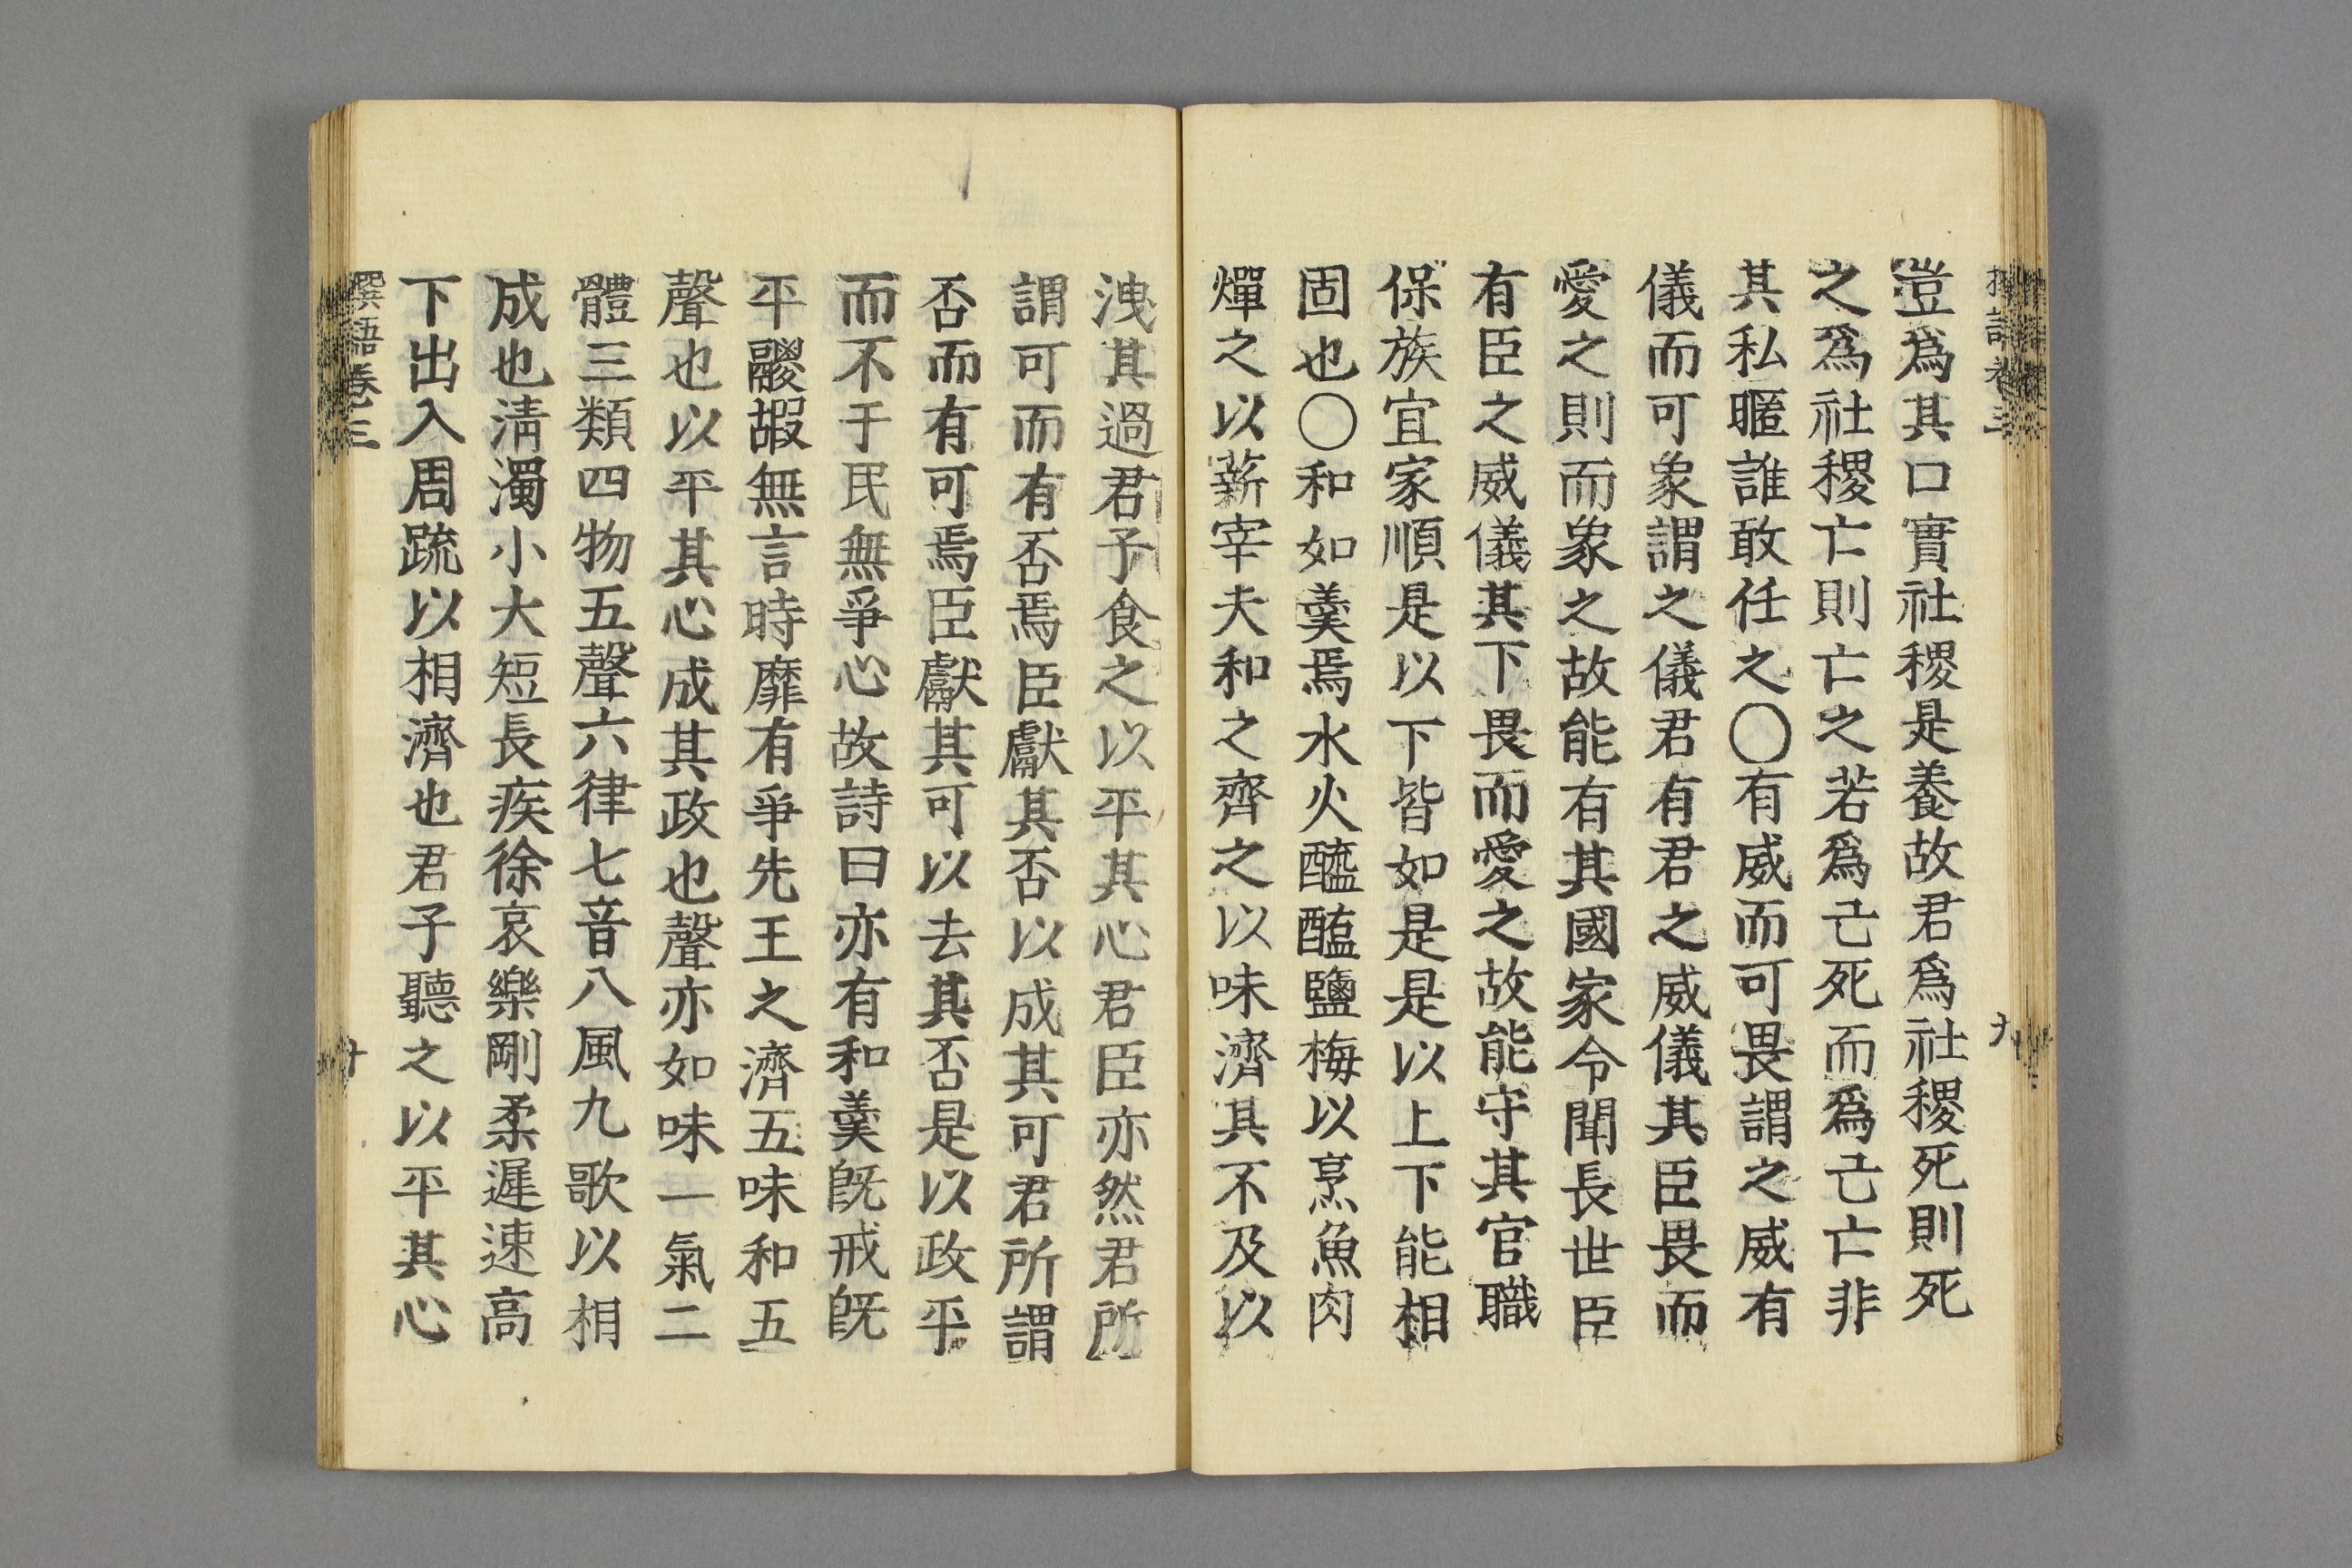 豈爲其口實社稷是養故君爲社稷死則死
之爲社稷亡則亡之若爲己死而爲己亡非
其私暱誰敢任之〇有威而可畏謂之威有
儀而可象謂之儀君有君之威儀其臣畏而
愛之則而象之故能有其國家令聞長世臣
有臣之威儀其下畏而愛之故能守其官職
保族宜家順是以下皆如是是以上下能相
固也〇和如羹焉水火醯醢鹽梅以烹魚肉
燀之以薪宰夫和之齊之以味濟其不及以
洩其過君子食之以平其心君臣亦然君所
謂可而有否焉臣獻其否以成其可君所謂
否而有可焉臣獻其可以去其否是以政平
而不于民無爭心故詩曰亦有和羹旣戒旣
平鬷嘏無言時靡有爭先王之濟五味和五
聲也以平其心成其政也聲亦如味一氣二
體三類四物五聲六律七音八風九歌以相
成也淸濁小大短長疾徐哀樂剛柔遲速高
下出入周疏以相濟也君子聽之以平其心
撰語卷三
十